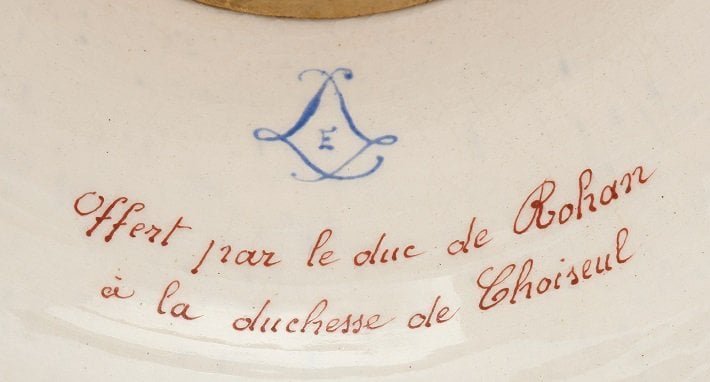 E
Offert par le duc de Rohan
à la duchesse de Choiseul